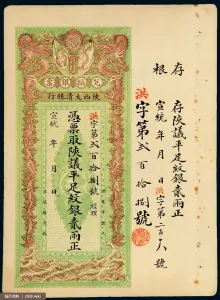 兌換銀票
陝西大清銀行
洪字第貳百拾捌號 經理
憑票取陝議平足紋銀貳兩正
宣統 年 月 日
存根
存陝議平足紋銀貳兩正
宣統 年 月 日洪字第二百十八號
洪字第貳百拾捌號